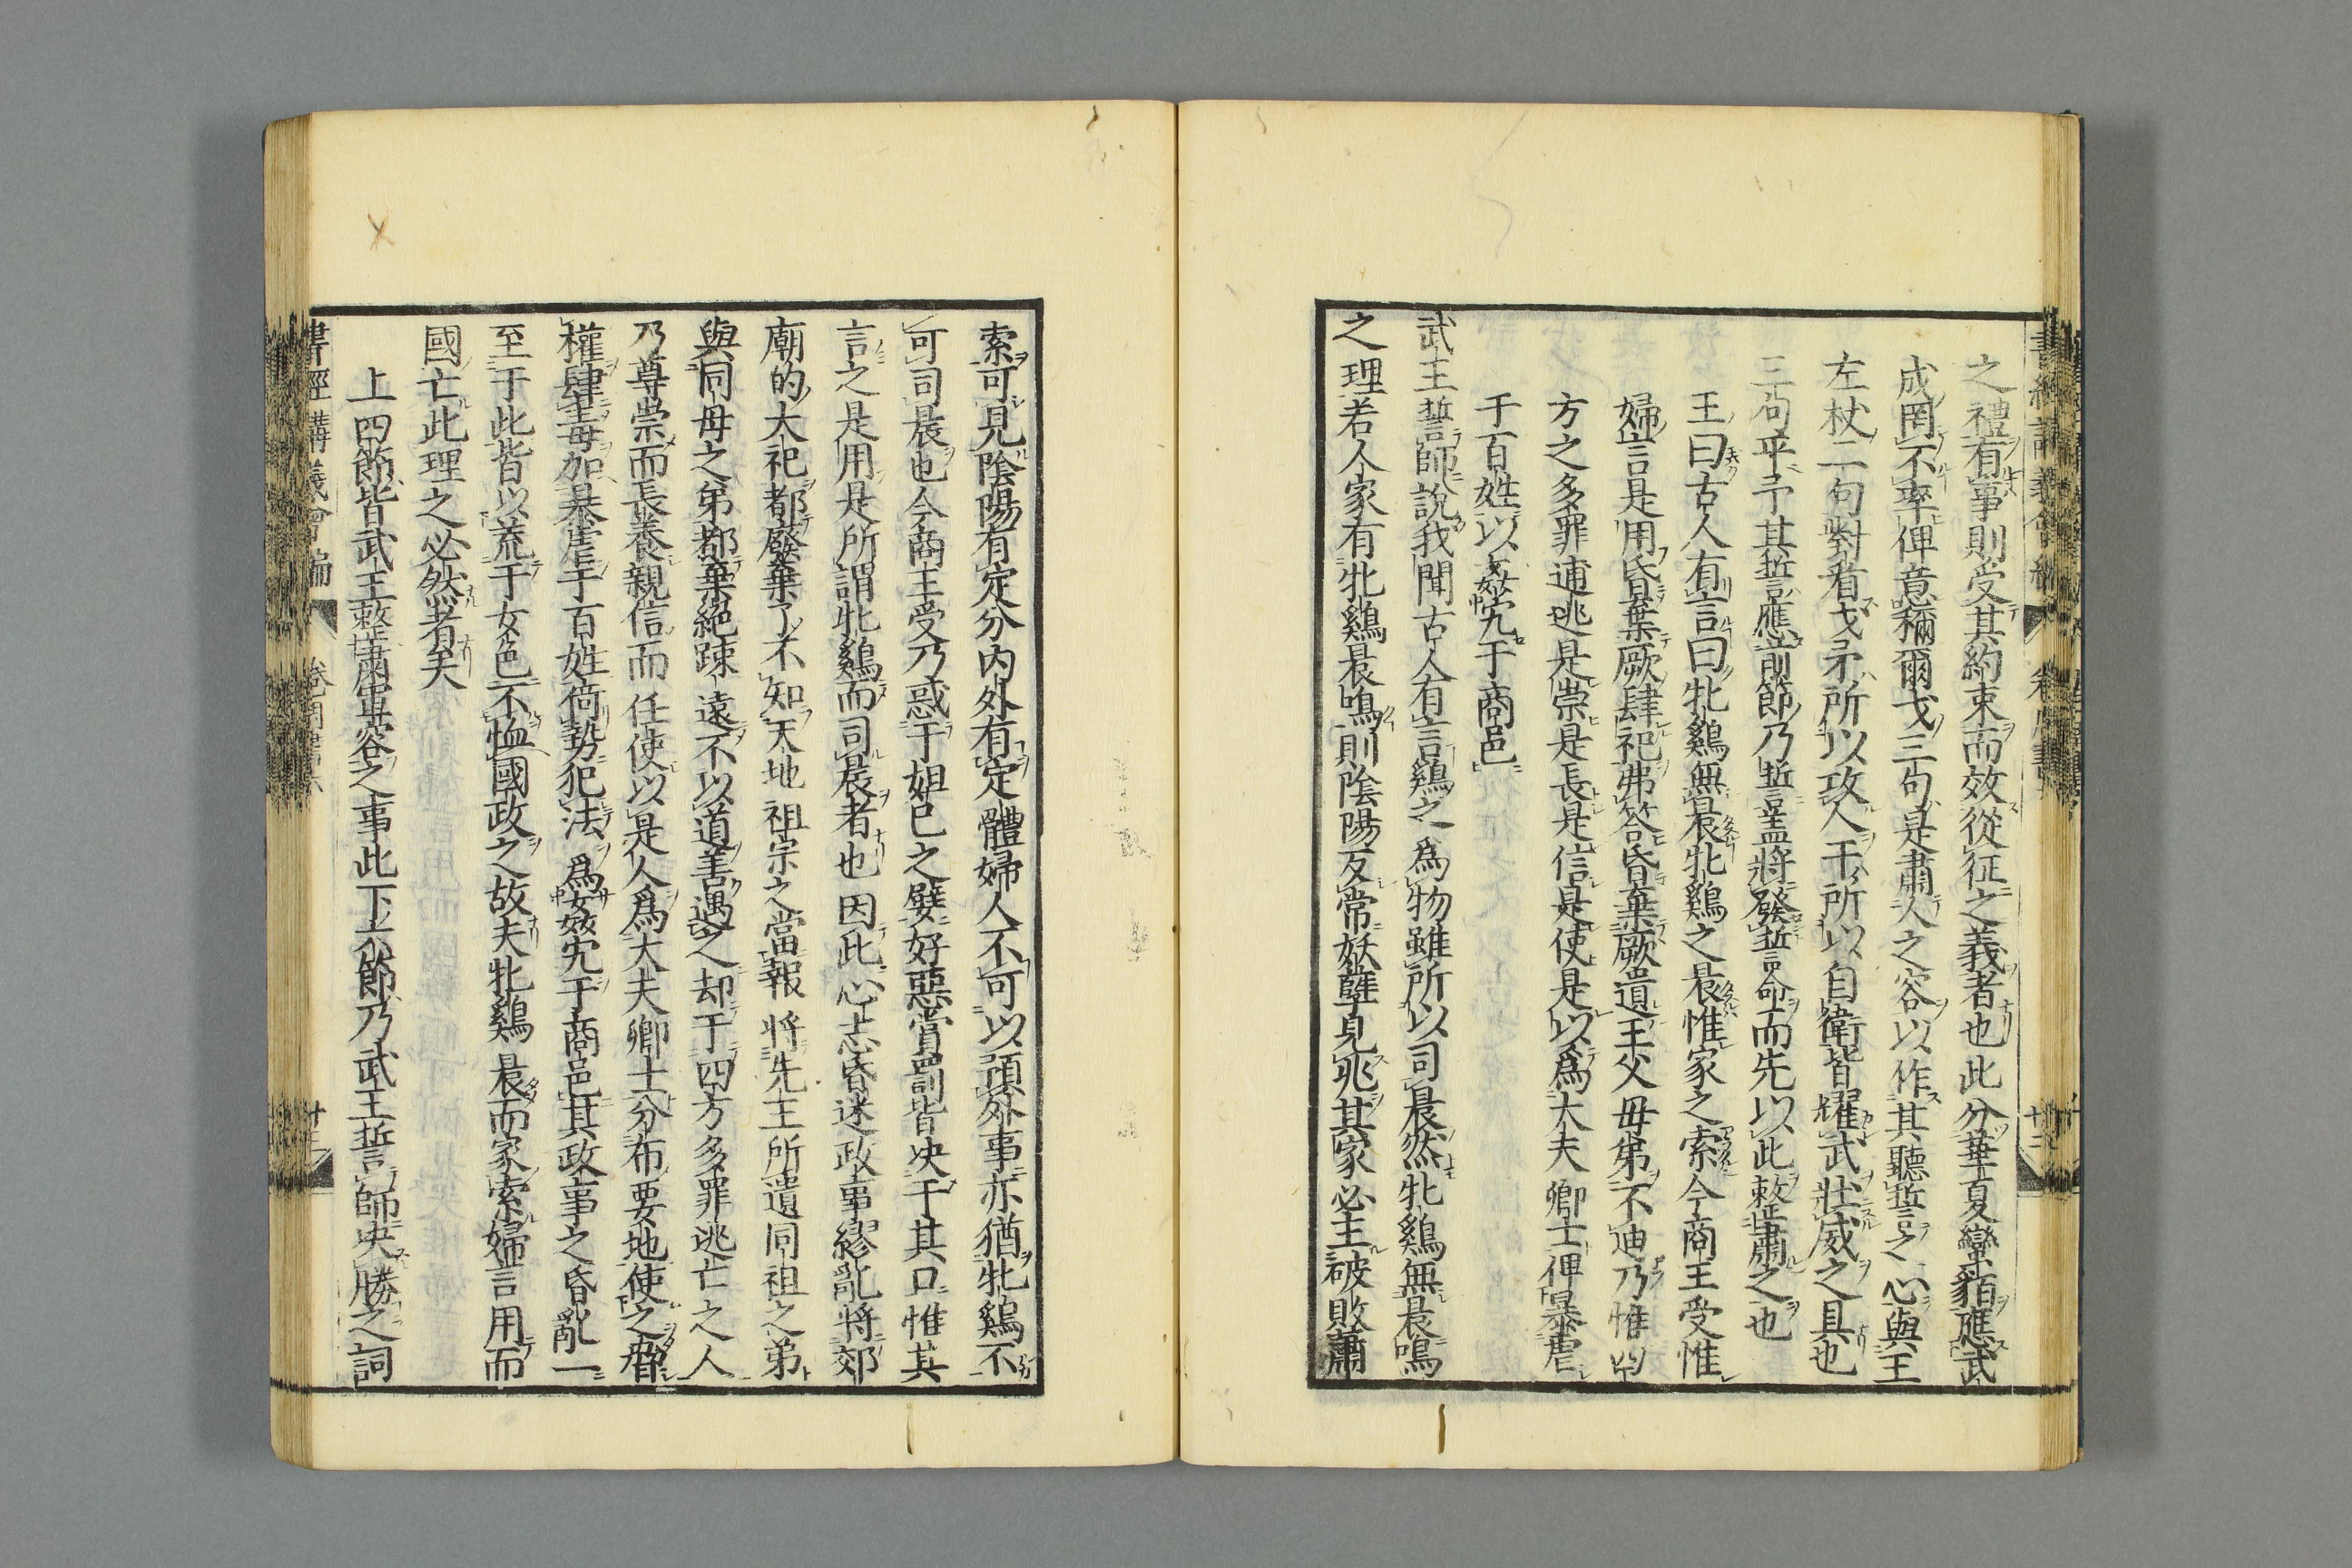 之禮有事則受其約束而效從征之義者也此分華夏蠻貊應武
成罔不率俾意稱爾戈三句是肅人之容以作其聽誓之心與王
左杖二句對看戈矛所以攻人干所以自衛皆耀武壯威之具也
三句平予其誓應前節乃誓言蓋將發誓命而先以此整肅之也
王曰古人有言曰牝鷄無晨牝鷄之晨惟家之索今商王受惟
婦言是用昏棄厥肆祀弗答昏棄厥遺王父母弟不迪乃惟四
方之多罪逋逃是崇是長是信是使是以爲大夫卿士俾暴虐
于百姓以姦宄于商邑
武王誓師說我聞古人有言鷄之爲物雖所以司晨然牝鷄無晨鳴
之理若人家有牝鷄晨鳴則陰陽反常妖孽見兆其家必主破敗蕭
索可見陰陽有定分內外有定體婦人不可以預外事亦猶牝鷄不
可司晨也今商王受乃惑于妲已之嬖好惡賞罰皆決于其口惟其
言之是用是所謂牝鷄而司晨者也因此心志昏迷政事繆亂將郊
廟的大祀都廢棄了不知天地祖宗之當報將先王所遺同祖之弟
與同母之弟都棄絕踈遠不以道善遇之却于四方多罪逃亡之人
乃尊崇而長養親信而任使以是人爲大夫卿士分布要地使之
權肆毒加暴虐于百姓倚勢犯法爲姦宄于商邑其政事之昏亂一
至于此皆以荒于女色不恤國政之故夫牝鷄晨而家索婦言用而
國亡此理之必然者矣
上四節皆武王整肅軍容之事此下六節乃武王誓師決勝之詞
書經講義會編